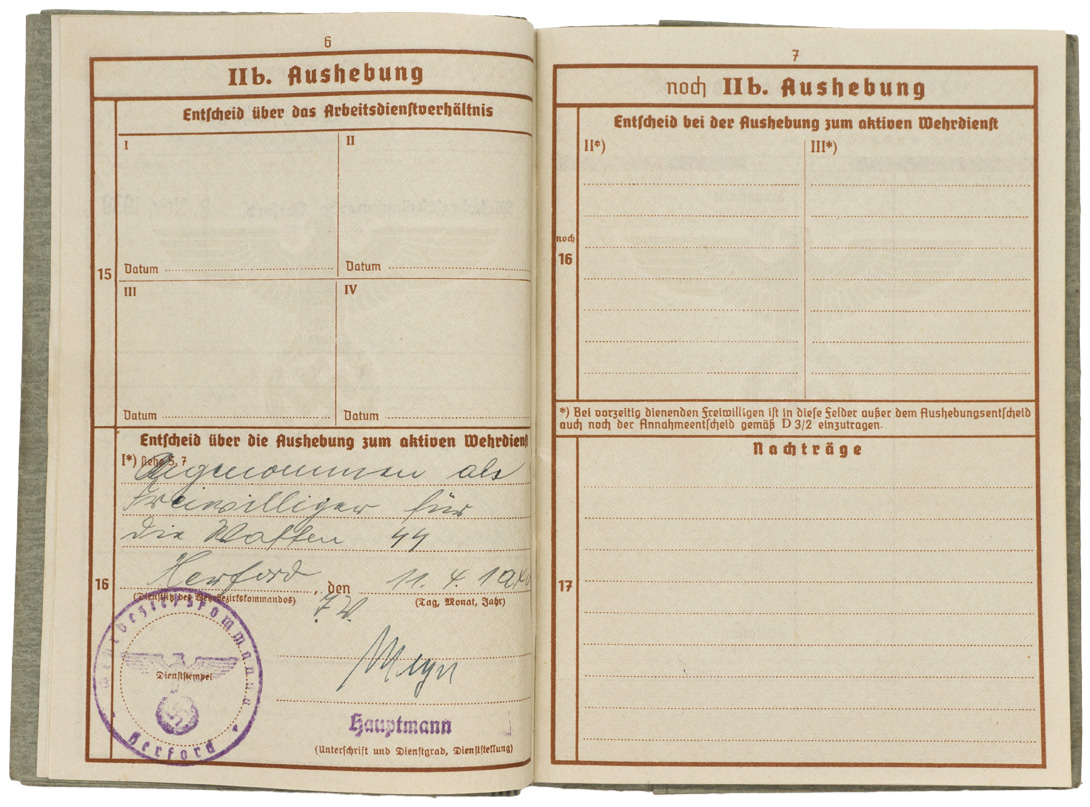 6
IIb. Aushebung
Entscheid über das Arbeitsdienstverhältnis
I
II
Datum
Datum
15
III
IV
Datum
Datum
Entscheid über die Aushebung zum aktiven Wehrdienst
I*) siehe S. 7
Angenommen als
Freiwilliger für
die Waffen SS
16
Herford, den 11. 4. 1940
(Dienstsitz des Wehrbezirkskommandos)
(Tag, Monat, Jahr)
Wehrbezirkskommando
Dienststempel
Herford
Hauptmann
(Unterschrift und Dienstgrad, Dienststellung)
7
noch IIb. Aushebung
Entscheid bei der Aushebung zum aktiven Wehrdienst
II*)
III*)
noch
16
*) Bei vorzeitig dienenden Freiwilligen ist in diese Felder außer dem Aushebungsentscheid
auch noch der Annahmeentscheid gemäß D 3/2 einzutragen.
Nachträge
17